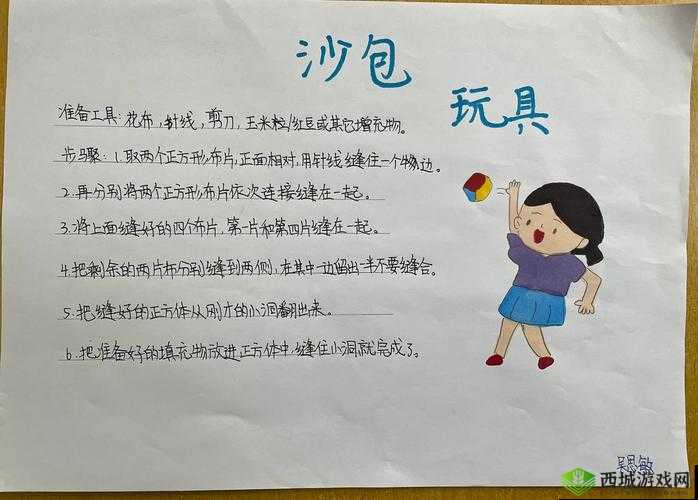 沙包
玩具
准备工具:花布,针线,剪刀,玉米粒/红豆或其它增充物。
步骤:1.取两个正方形布片,正面相对,用针线缝住一个物边。
2.再分别将两个正方形布片依次连接缝在一起。
3.将上面缝好的四个布片,第一片和第四片缝在一起。
4.把剩余的两片布分别缝到两侧,在其中一边留出一半不要缝合。
5.把缝好的正方体从刚才的小洞翻出来。
6.把准备好的填充物放进正方体中,缝住小洞就完成了。
吴思敏
西城游戏网